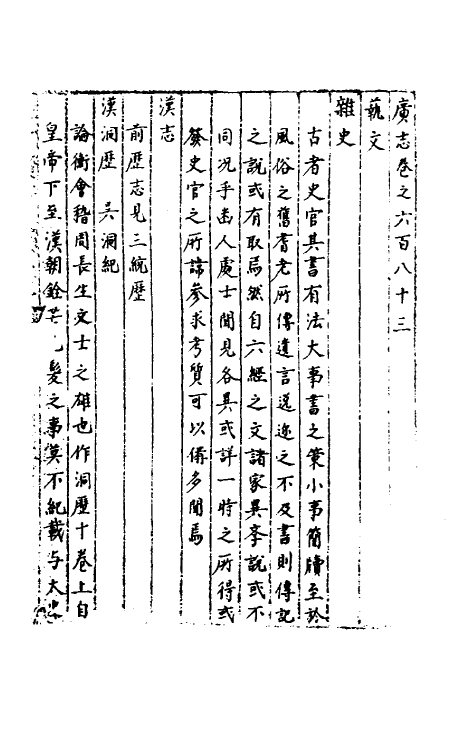 廣志卷之六百八十三
藝文
雜史
古者史官其書有法大事書之策小事簡牘至於
風俗之舊耆老所傳遺言逸迹之不及書則傳記
之說或有取焉然自六經之文諸家異學說或不
同況乎幽人處士聞見各異或詳一時之所得或
發史官之所諱參求考質可以備多聞焉
漢志
前歷志見三統歷
漢洞歷 吳洞紀
論衡會稽周長生文士之雄也作洞歷十卷上自
皇帝下至漢朝銓芒毛髮之事莫不紀載与太史